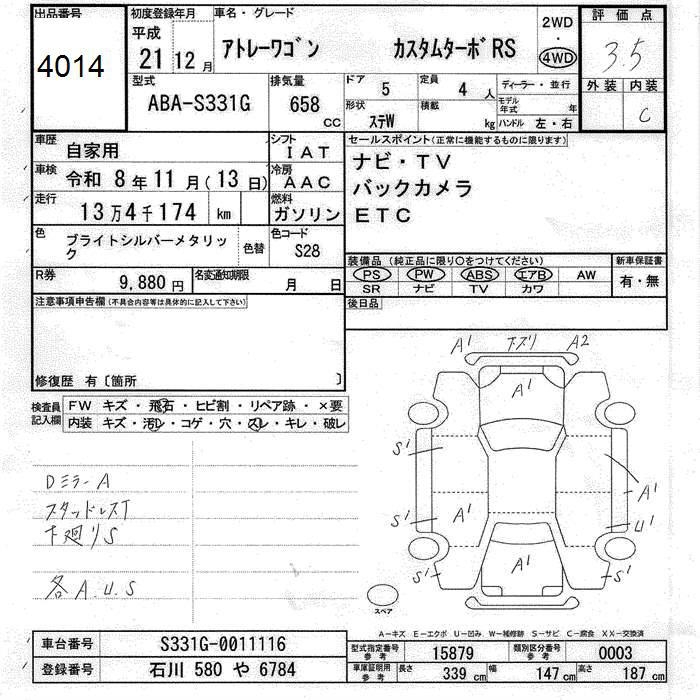 出品番号
4014
初度登録年月
平成
21 12 月
車名・グレード
アトレーワゴン カスタムターボRS
2WD
・
4WD
評価点
3.5
外装 内装
C
型式
ABA-S331G
排気量
658 cc
ドア 5
定員 4 人
形状 ステW
積載 kg
ディーラー・並行
モデル年式 年
ハンドル 左・右
車歴 自家用
シフト IAT
車検 令和 8 年 11 月 (13 日)
冷房 AAC
走行 13 万 4 千 174 km
燃料 ガソリン
色 ブライトシルバーメタリック
色替
色コード S28
R券 9,880 円
名変通知期限 月 日
セールスポイント(正常に機能するものに限ります)
ナビ・TV
バックカメラ
ETC
装備品(純正品に限り○をつけてください)
PS PW ABS エアB AW
SR ナビ TV カワ
新車保証書
有・無
後日品
注意事項申告欄(不具合内容等は具体的に記入して下さい)
修復歴 有〔箇所 〕
検査員記入欄
FW キズ・飛石・ヒビ割・リペア跡・×要
内装 キズ・汚レ・コゲ・穴・スレ・キレ・破レ
DミラーA
スタッドレスT
下廻りS
各A.U.S
A1 下ズリ A2
A1
S1
A1
S1 A1 U1
A1
S1 S1
スペア
A-キズ E-エクボ U-凹み W-補修跡 S-サビ C-腐食 XX-交換済
車台番号 S331G-0011116
登録番号 石川 580 や 6784
型式指定番号 参考 15879
類別区分番号 参考 0003
車庫証明用 参考 長さ 339 cm 幅 147 cm 高さ 187 cm